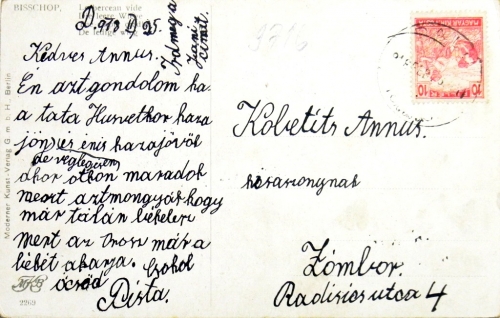 BISSCHOP.
Le berceau vide
De ledige wieg
D. 913 D/25.
Ird meg a
Zani
címét.
Kedves Annus.
Én azt gondolom ha
a tata Husvetkor haza
jön és én is hazajövök
de véglegesen
akor othon maradok
mert aztmongyák hogy
már talán bekelesz
mert az orosz már a
békét akarja. Csokol
öcséd
Pista.
Kobetits Annus.
kisasszonynak
Zómbor.
Radisics utca 4
Moderner Kunst-Verlag G. m. b. H. Berlin
MKB
2269
MAGYAR
10
10